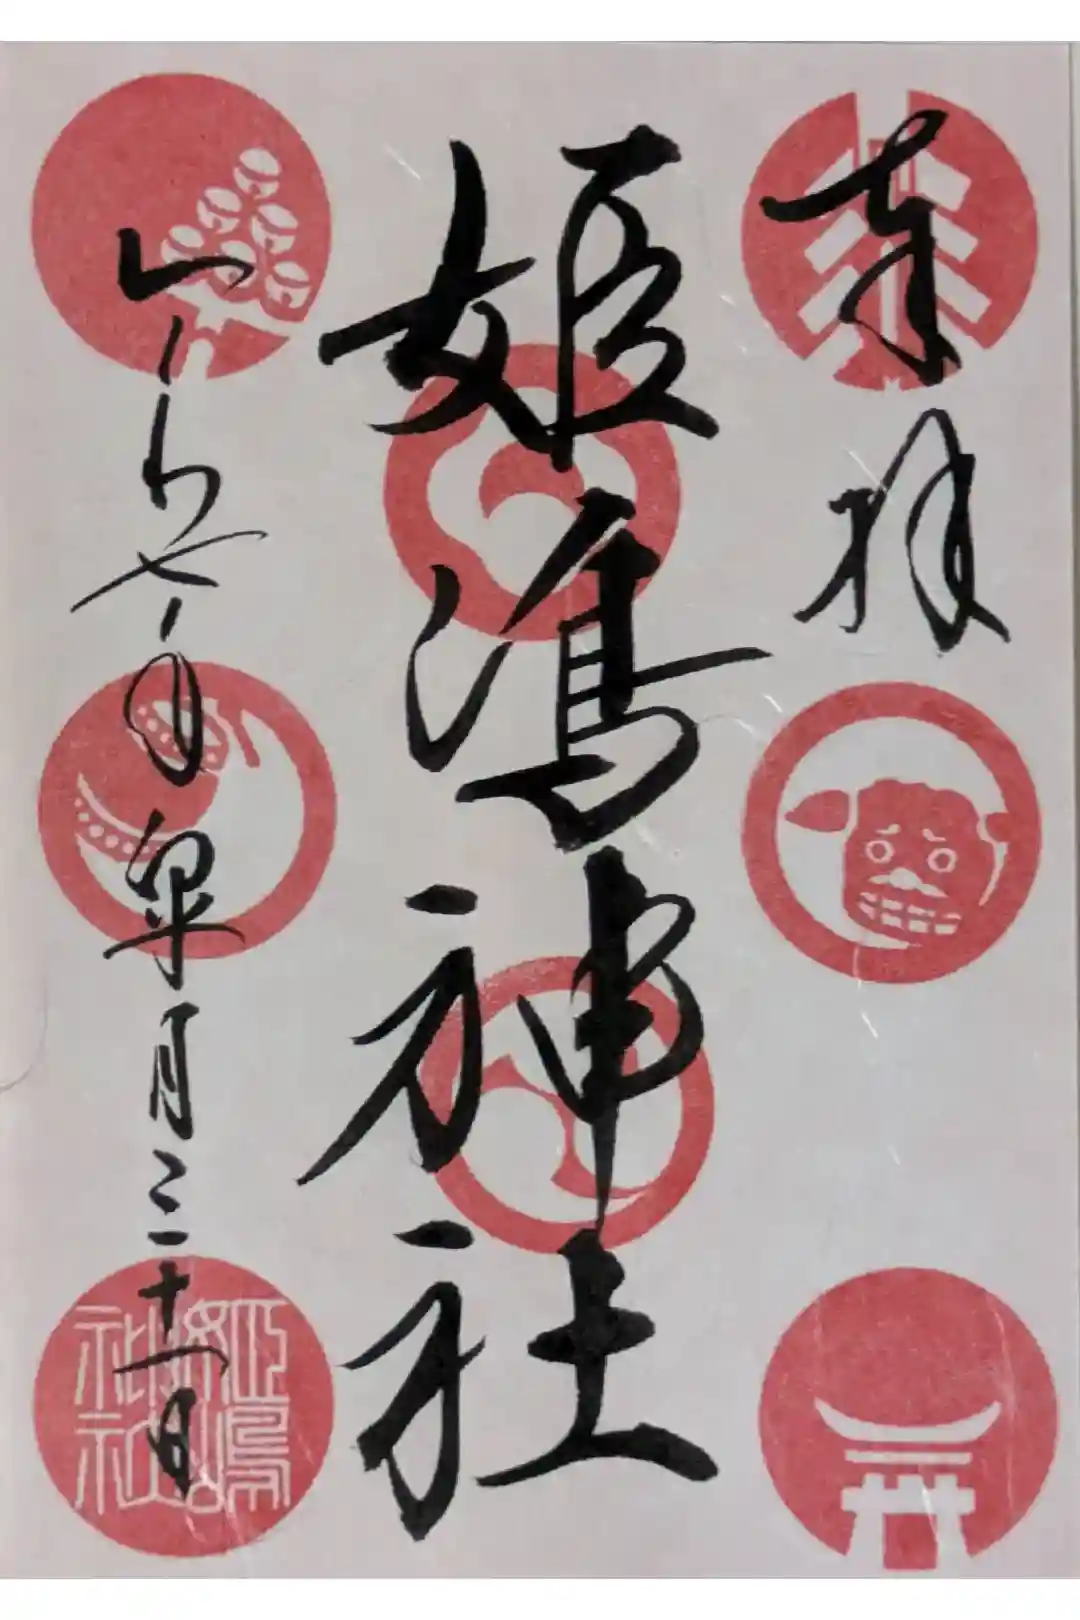 奉拝
姫嶋神社
令和七年皐月三十一日
姫嶋
神社